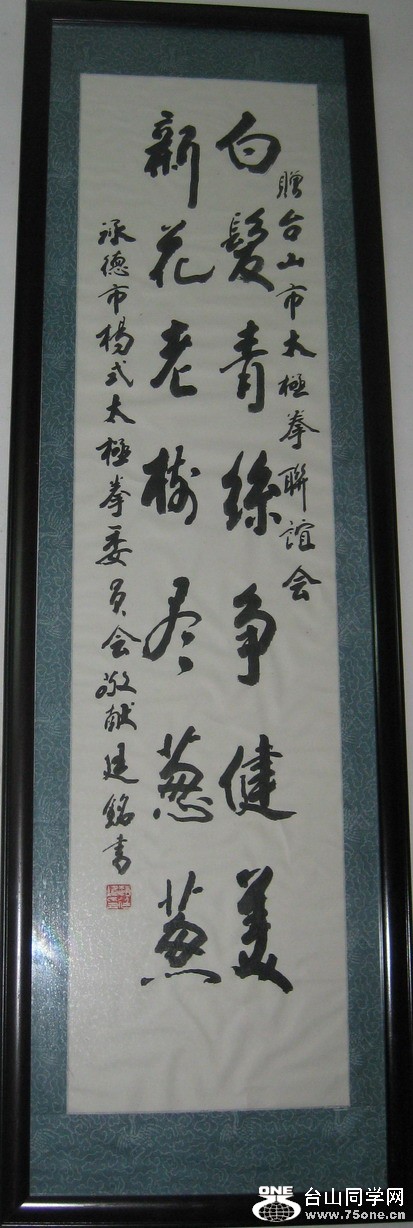 贈台山市太極拳聯誼会
白髮青絲争健美
新花老樹尽葱葱
承德市楊式太極拳委员会敬献廷銘書
ONE
台山同学网
www.75one.cn